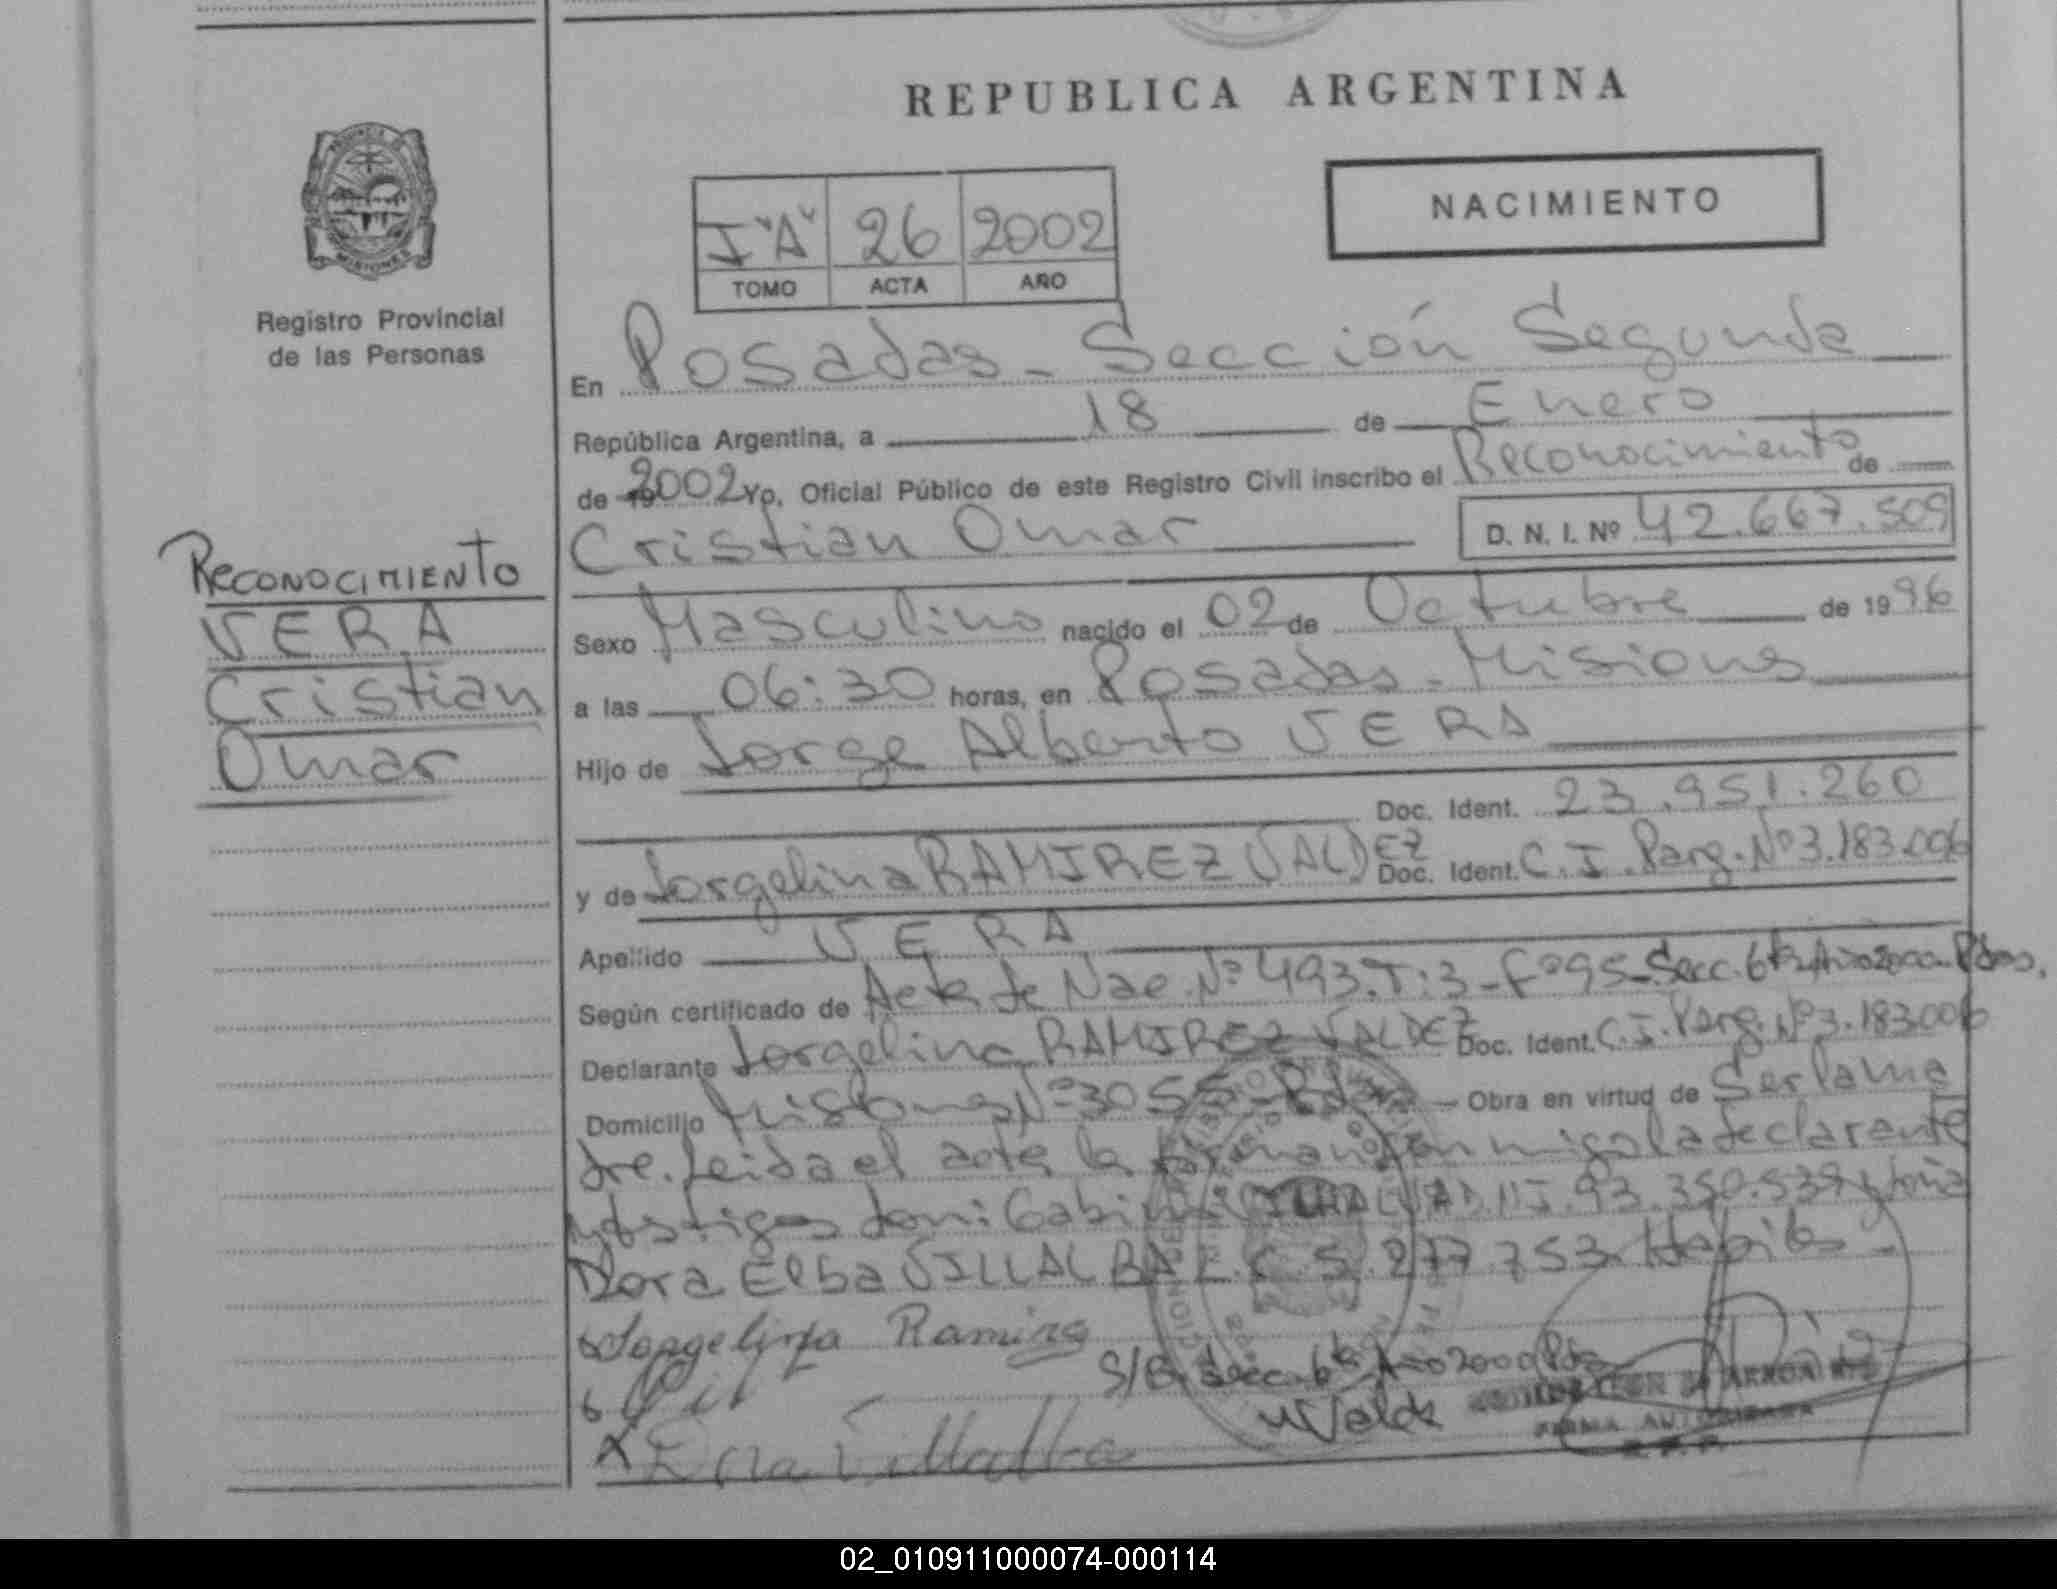 REPUBLICA ARGENTINA
PROVINCIA
MISIONES
Registro Provincial
de las Personas
NACIMIENTO
I "A" 26 2002
TOMO ACTA AÑO
En Posadas - Sección Segunda
República Argentina, a 18 de Enero
de 19 2002 Yo, Oficial Público de este Registro Civil inscribo el Reconocimiento de
Cristian Omar D. N. I. Nº 42.667.509
RECONOCIMIENTO
VERA
Cristian
Omar
Sexo Masculino nacido el 02 de Octubre de 1996
a las 06:30 horas, en Posadas - Misiones
Hijo de Jorge Alberto VERA
Doc. Ident. 23.951.260
y de Jorgelina RAMIREZ VALDEZ Doc. Ident. C.I. Parg. Nº 3.183.006
Apellido VERA
Según certificado de Acta de Nac. Nº 493. T: 3 - Fº 95 - Secc. 6ta Año 2000 - Pdas.
Declarante Jorgelina RAMIREZ VALDEZ Doc. Ident. C.I. Parg. Nº 3.183.006
Domicilio Misiones Nº 3055 - Pdas Obra en virtud de Ser la ma
dre. Leida el acta la firman con migo la declarante
y testigos don: D.N.I. 93.350.539 y doña
Dora Elba VILLALBA L.C. 5.277.753. Habil
Jorgelina Ramires
S/B Secc. 6ta Año 2000 Pdas
Vale
X Dora Villalba
FIRMA AUTORIZADA
R. P. P.
02_010911000074-000114